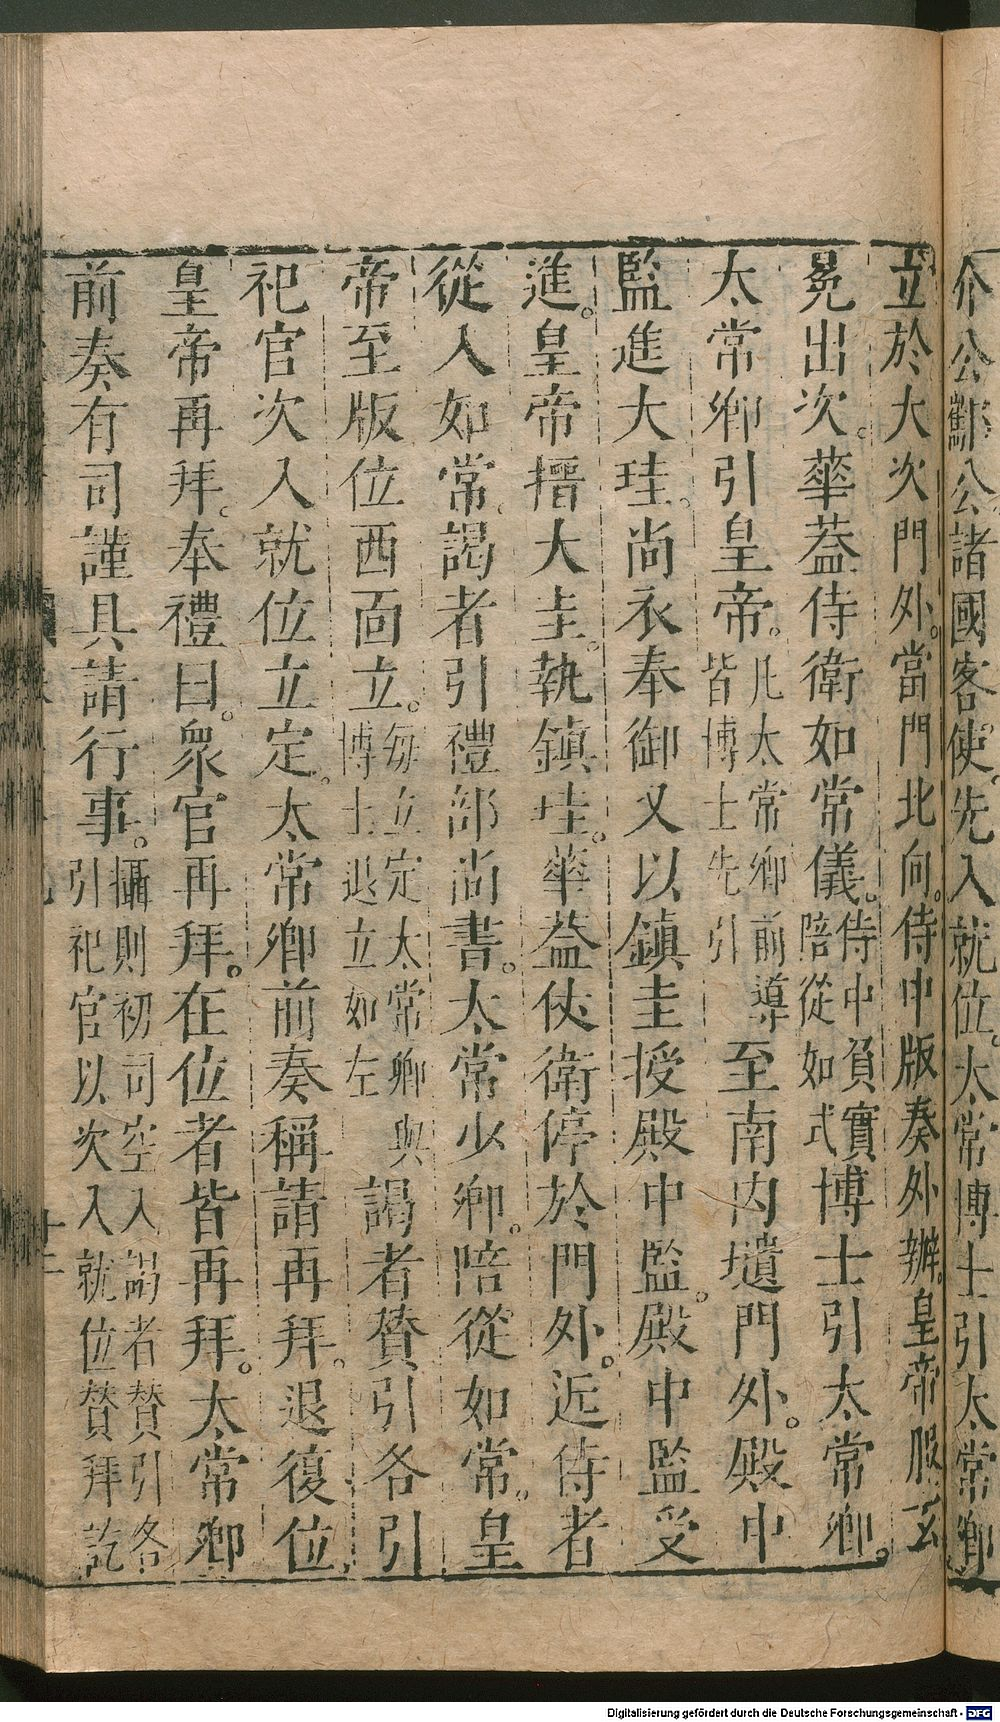 介公酅公諸國客使先入就位太常博士引太常卿
立於大次門外。當門北向。侍中版奏外辦。皇帝服玄
冕出次。華蓋侍衛如常儀。侍中負寶陪從如式博士引太常卿。
太常卿引皇帝。凡太常卿前導皆博士先引至南内壝門外。殿中
監進大珪。尚衣奉御又以鎮圭授殿中監。殿中監受
進。皇帝搢大圭。執鎮珪。華蓋仗衛停於門外。近侍者
從入如常。謁者引禮部尚書。太常少卿。陪從如常。皇
帝至版位西面立。每立定太常卿與博士退立如左謁者贊引各引
祀官次入就位立定。太常卿前奏稱請再拜。退復位
皇帝再拜。奉禮曰。衆官再拜。在位者皆再拜。太常卿
前奏有司謹具請行事。攝則初司空入謁者贊引各引祀官以次入就位贊拜訖
Digitalisierung gefördert durch die Deutsche Forschungsgemeinschaft - DFG